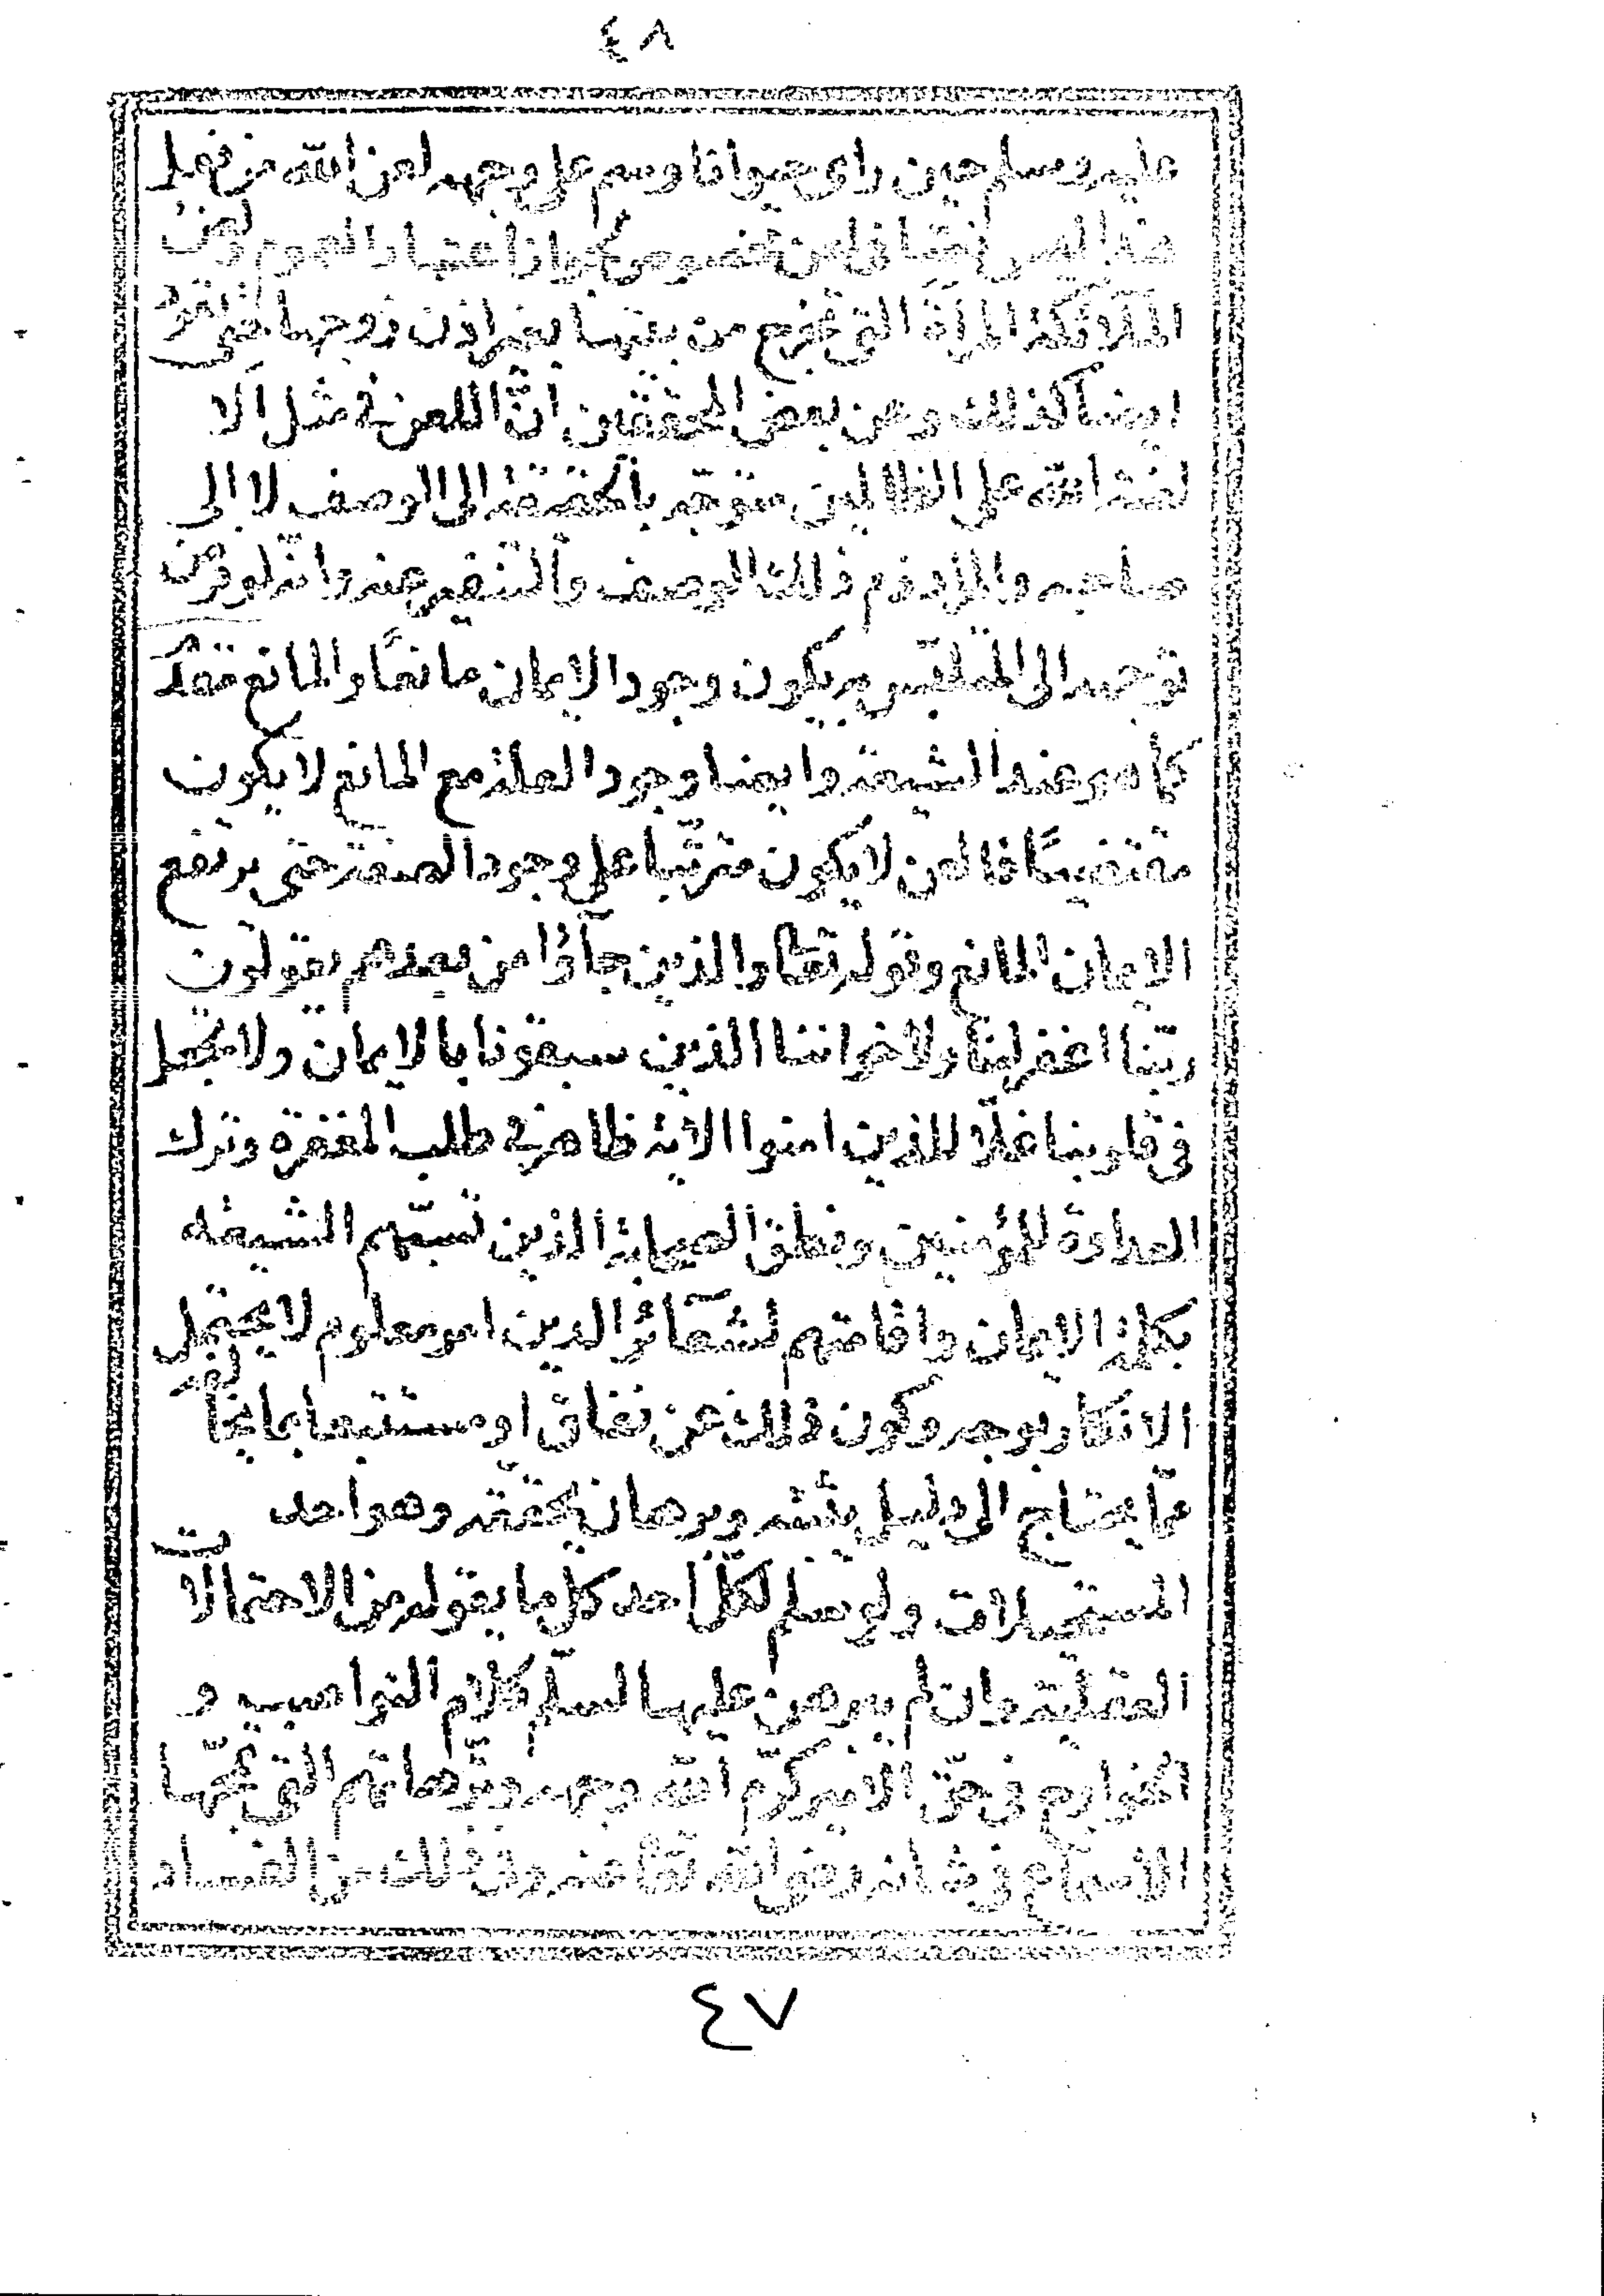 ٤٨
عليه وسلم حين راى حيوانا وسم على وجهه لعن الله من فعل
هذا ليس نصا في لعن مخصوص لجواز اعتبار العموم ولعن
الملائكة المرأة التي تخرج من بيتها بغير اذن زوجها حتى
ايضا كذلك وعن بعض المحققين أنّ اللعن في مثل الا
لعنة الله على الظالمين متوجه بالحقيقة الى الوصف لا الى
صاحبه والمراد ذم ذلك الوصف والتنفير عنه وانه لو فرض
توجهه الى المتلبّس به يكون وجود الايمان مانعًا والمانع مقدّم
كما هو عند الشيعة وايضا وجود العلة مع المانع لا يكون
مقتضيًا فاللعن لا يكون مترتّبا على وجود الصفة حتى يرتفع
الايمان المانع وقوله تعالى والذين جآؤا من بعدهم يقولون
ربّنا اغفر لنا ولاخواننا الذين سبقونا بالايمان ولا تجعل
في قلوبنا غلّا للذين امنوا الاية ظاهر في طلب المغفرة وترك
العداوة للمؤمنين ونطق الصحابة الذين تسبّهم الشيعه
بكلمة الايمان واقامتهم لشعآئر الدين امر معلوم لا يحتمل
الانكار بوجه وكون ذلك عن نفاق او مستتبعا بما
ممّا يحتاج الى دليل يثبته وبرهان يحققه وهو احد
المستحيلات ولو سلم لكلّ احد كل ما يقوله من الاحتمالات
العقليّة وان لم يبرهن عليها لسلم كلام النواصب و
الخوارج في حق الامير كرّم الله وجهه وترّهاتهم التي تمجّها
الاسماع في شانه رضي الله تعالى عنه وفي ذلك من الفساد
٤٧